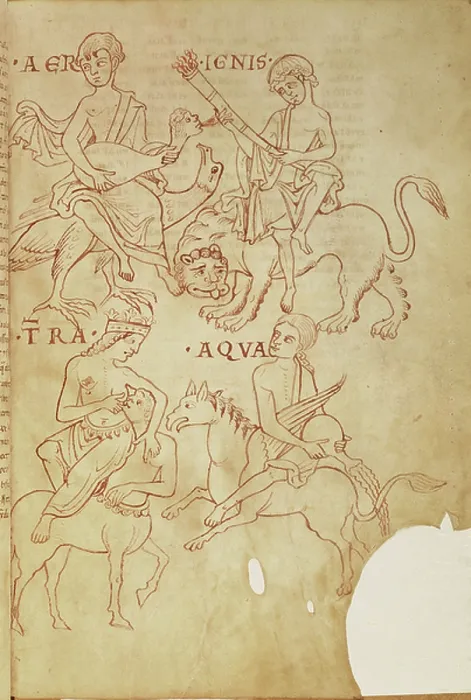 ·AER
·IGNIS·
·T̄RA·
·AQVA